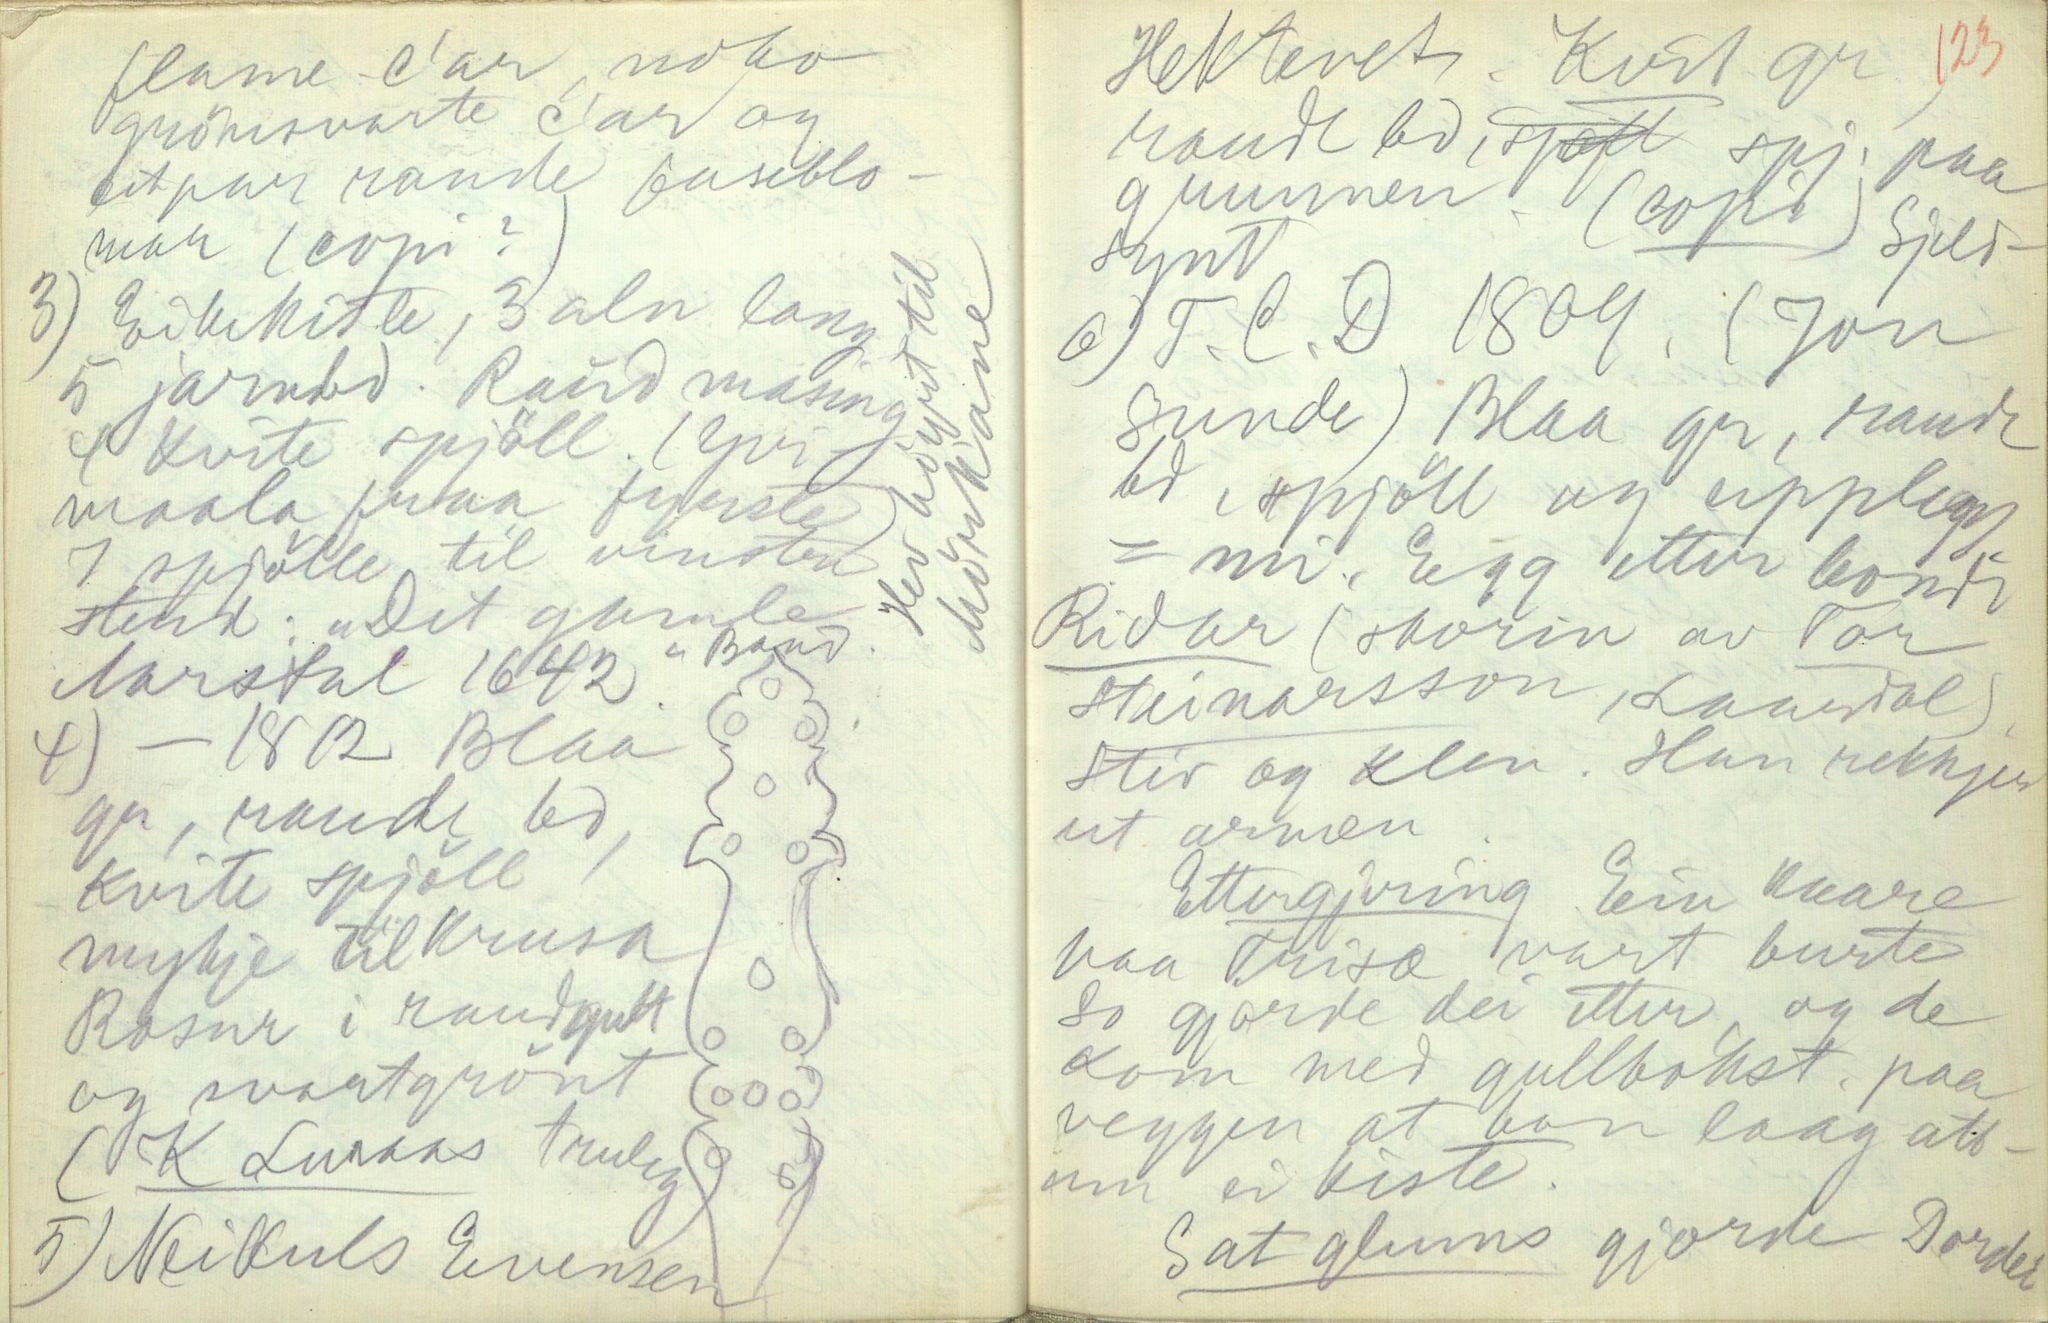 flame c'ar, noko
grönsvarte c'ar og
eit par raude fuseblo-
mar (copi?)
3) Eikekiste, 3 aln lang
5 jarnbd. Raud masing
4 kvite spjöll. (Yvi-
maala fraa fyrste)
I spjölle til vinster
stend: "Det gamle
Aarstal 1642." Band.
Hev höyrt til
Mörkiane
4) – 1812 Blaa
gr, raude bd,
kvite spjöll,
mykje tilkrusa
Rosur i raudgult
og svartgrönt
(K Luraas truleg
5) Neikuls Evensen
123
Hektevet. Kvit gr
raude bd, spjöll spj. paa
grunnen. (copi) Sjeld-
synt
6) T.C.D 1809. (Jon
Sunde) Blaa gr, raude
bd, spjöll og upplegg
= mi. Egg etter bondi
Ridar (skorin av Tor
Steinarsson, Laardal)
Stiv og klen. Han rekkjer
ut armen.
Ettergjering Ein kaare
paa Trisæ vart burte
So gjorde dei etter, og de
kom med gullbökst. paa
veggen at hon laag att-
um ei kiste.
Sat glums gjorde Dordei